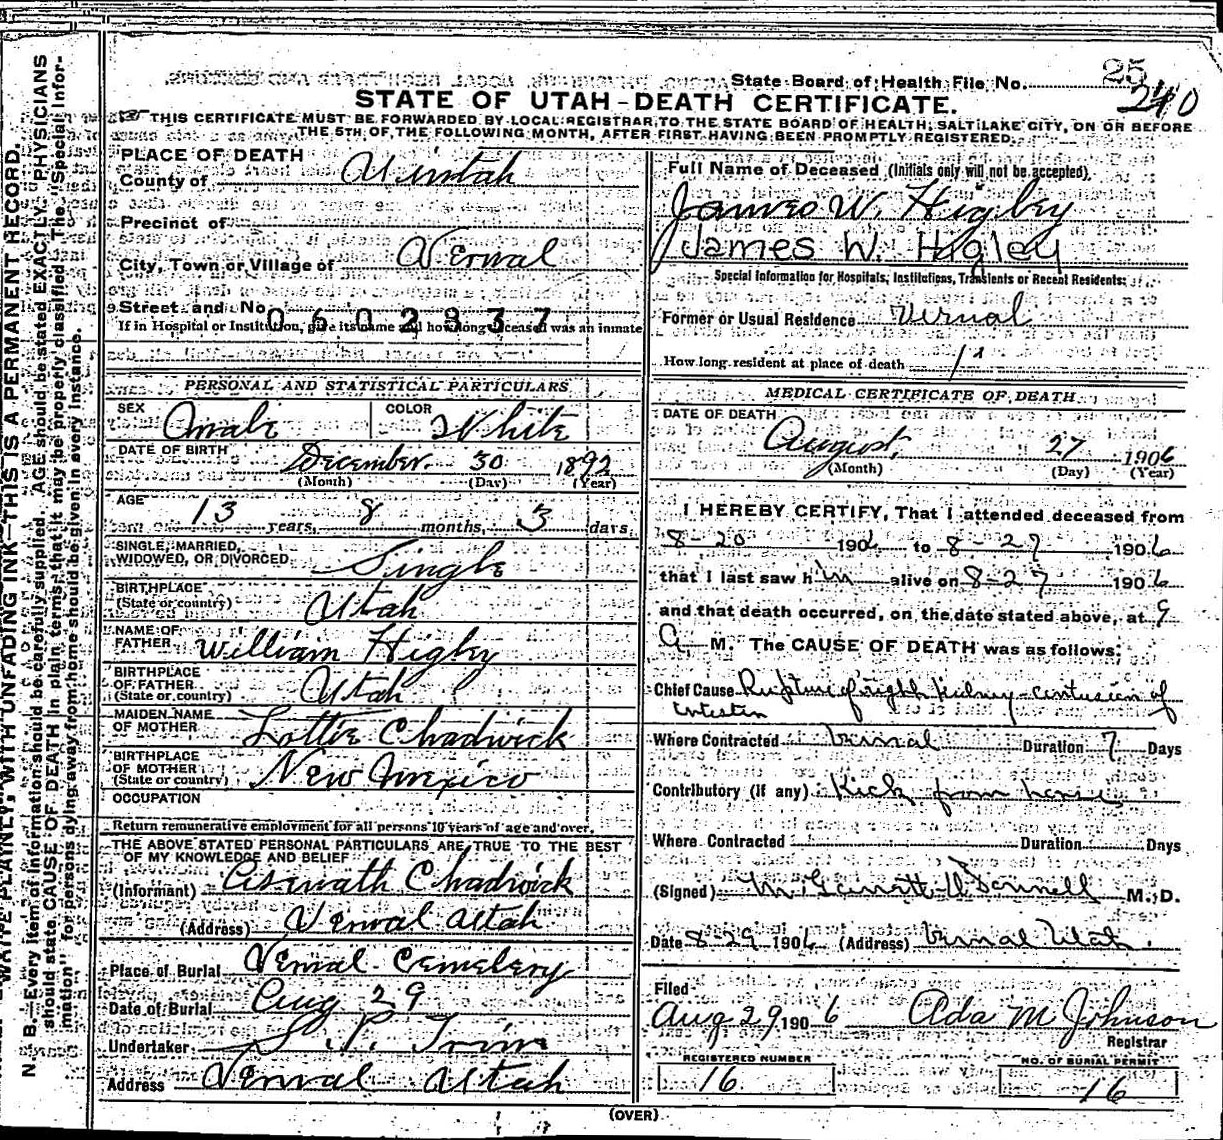 State Board of Health File No. 25
240
STATE OF UTAH-DEATH CERTIFICATE.
THIS CERTIFICATE MUST BE FORWARDED BY LOCAL REGISTRAR TO THE STATE BOARD OF HEALTH, SALT LAKE CITY, ON OR BEFORE
THE 5TH OF THE FOLLOWING MONTH, AFTER FIRST HAVING BEEN PROMPTLY REGISTERED.
WRITE PLAINLY, WITH UNFADING INK—THIS IS A PERMANENT RECORD.
N. B.—Every item of information should be carefully supplied. AGE should be stated EXACTLY. PHYSICIANS
should state CAUSE OF DEATH in plain terms, that it may be properly classified. The "Special Infor-
mation" for persons dying away from home should be given in every instance.
PLACE OF DEATH
County of Uintah
Precinct of
City, Town or Village of Vernal
Street and No.
0602837
If in Hospital or Institution, give its name and how long deceased was an inmate
PERSONAL AND STATISTICAL PARTICULARS
SEX Male COLOR White
DATE OF BIRTH December 30 1892
(Month) (Day) (Year)
AGE 13 years, 8 months, 3 days
SINGLE, MARRIED,
WIDOWED, OR DIVORCED Single
BIRTHPLACE
(State or country) Utah
NAME OF
FATHER William Higby
BIRTHPLACE
OF FATHER
(State or country) Utah
MAIDEN NAME
OF MOTHER Lottie Chadwick
BIRTHPLACE
OF MOTHER
(State or country) New Mexico
OCCUPATION
Return remunerative employment for all persons 10 years of age and over.
THE ABOVE STATED PERSONAL PARTICULARS ARE TRUE TO THE BEST
OF MY KNOWLEDGE AND BELIEF
(Informant) Chadwick
(Address) Vernal Utah
Place of Burial Vernal Cemetery
Date of Burial Aug 29
Undertaker S. P. Trim
Address Vernal Utah
Full Name of Deceased (Initials only will not be accepted).
James W. Higby
James W. Higley
Special Information for Hospitals, Institutions, Transients or Recent Residents:
Former or Usual Residence Vernal
How long resident at place of death
MEDICAL CERTIFICATE OF DEATH
DATE OF DEATH
August 27 1906
(Month) (Day) (Year)
I HEREBY CERTIFY, That I attended deceased from
8-20 1906 to 8-27 1906
that I last saw him alive on 8-27 1906
and that death occurred, on the date stated above, at 9
A. M. The CAUSE OF DEATH was as follows:
Chief Cause Rupture of right kidney-contusion of
intestin
Where Contracted Vernal Duration 7 Days
Contributory (if any) Kick from horse
Where Contracted Duration Days
(Signed) M. Garnett O'Donnell M. D.
Date 8-29 1906 (Address) Vernal Utah.
Filed
Aug 29 1906 Ada M Johnson
Registrar
REGISTERED NUMBER
16
NO. OF BURIAL PERMIT
16
(OVER)